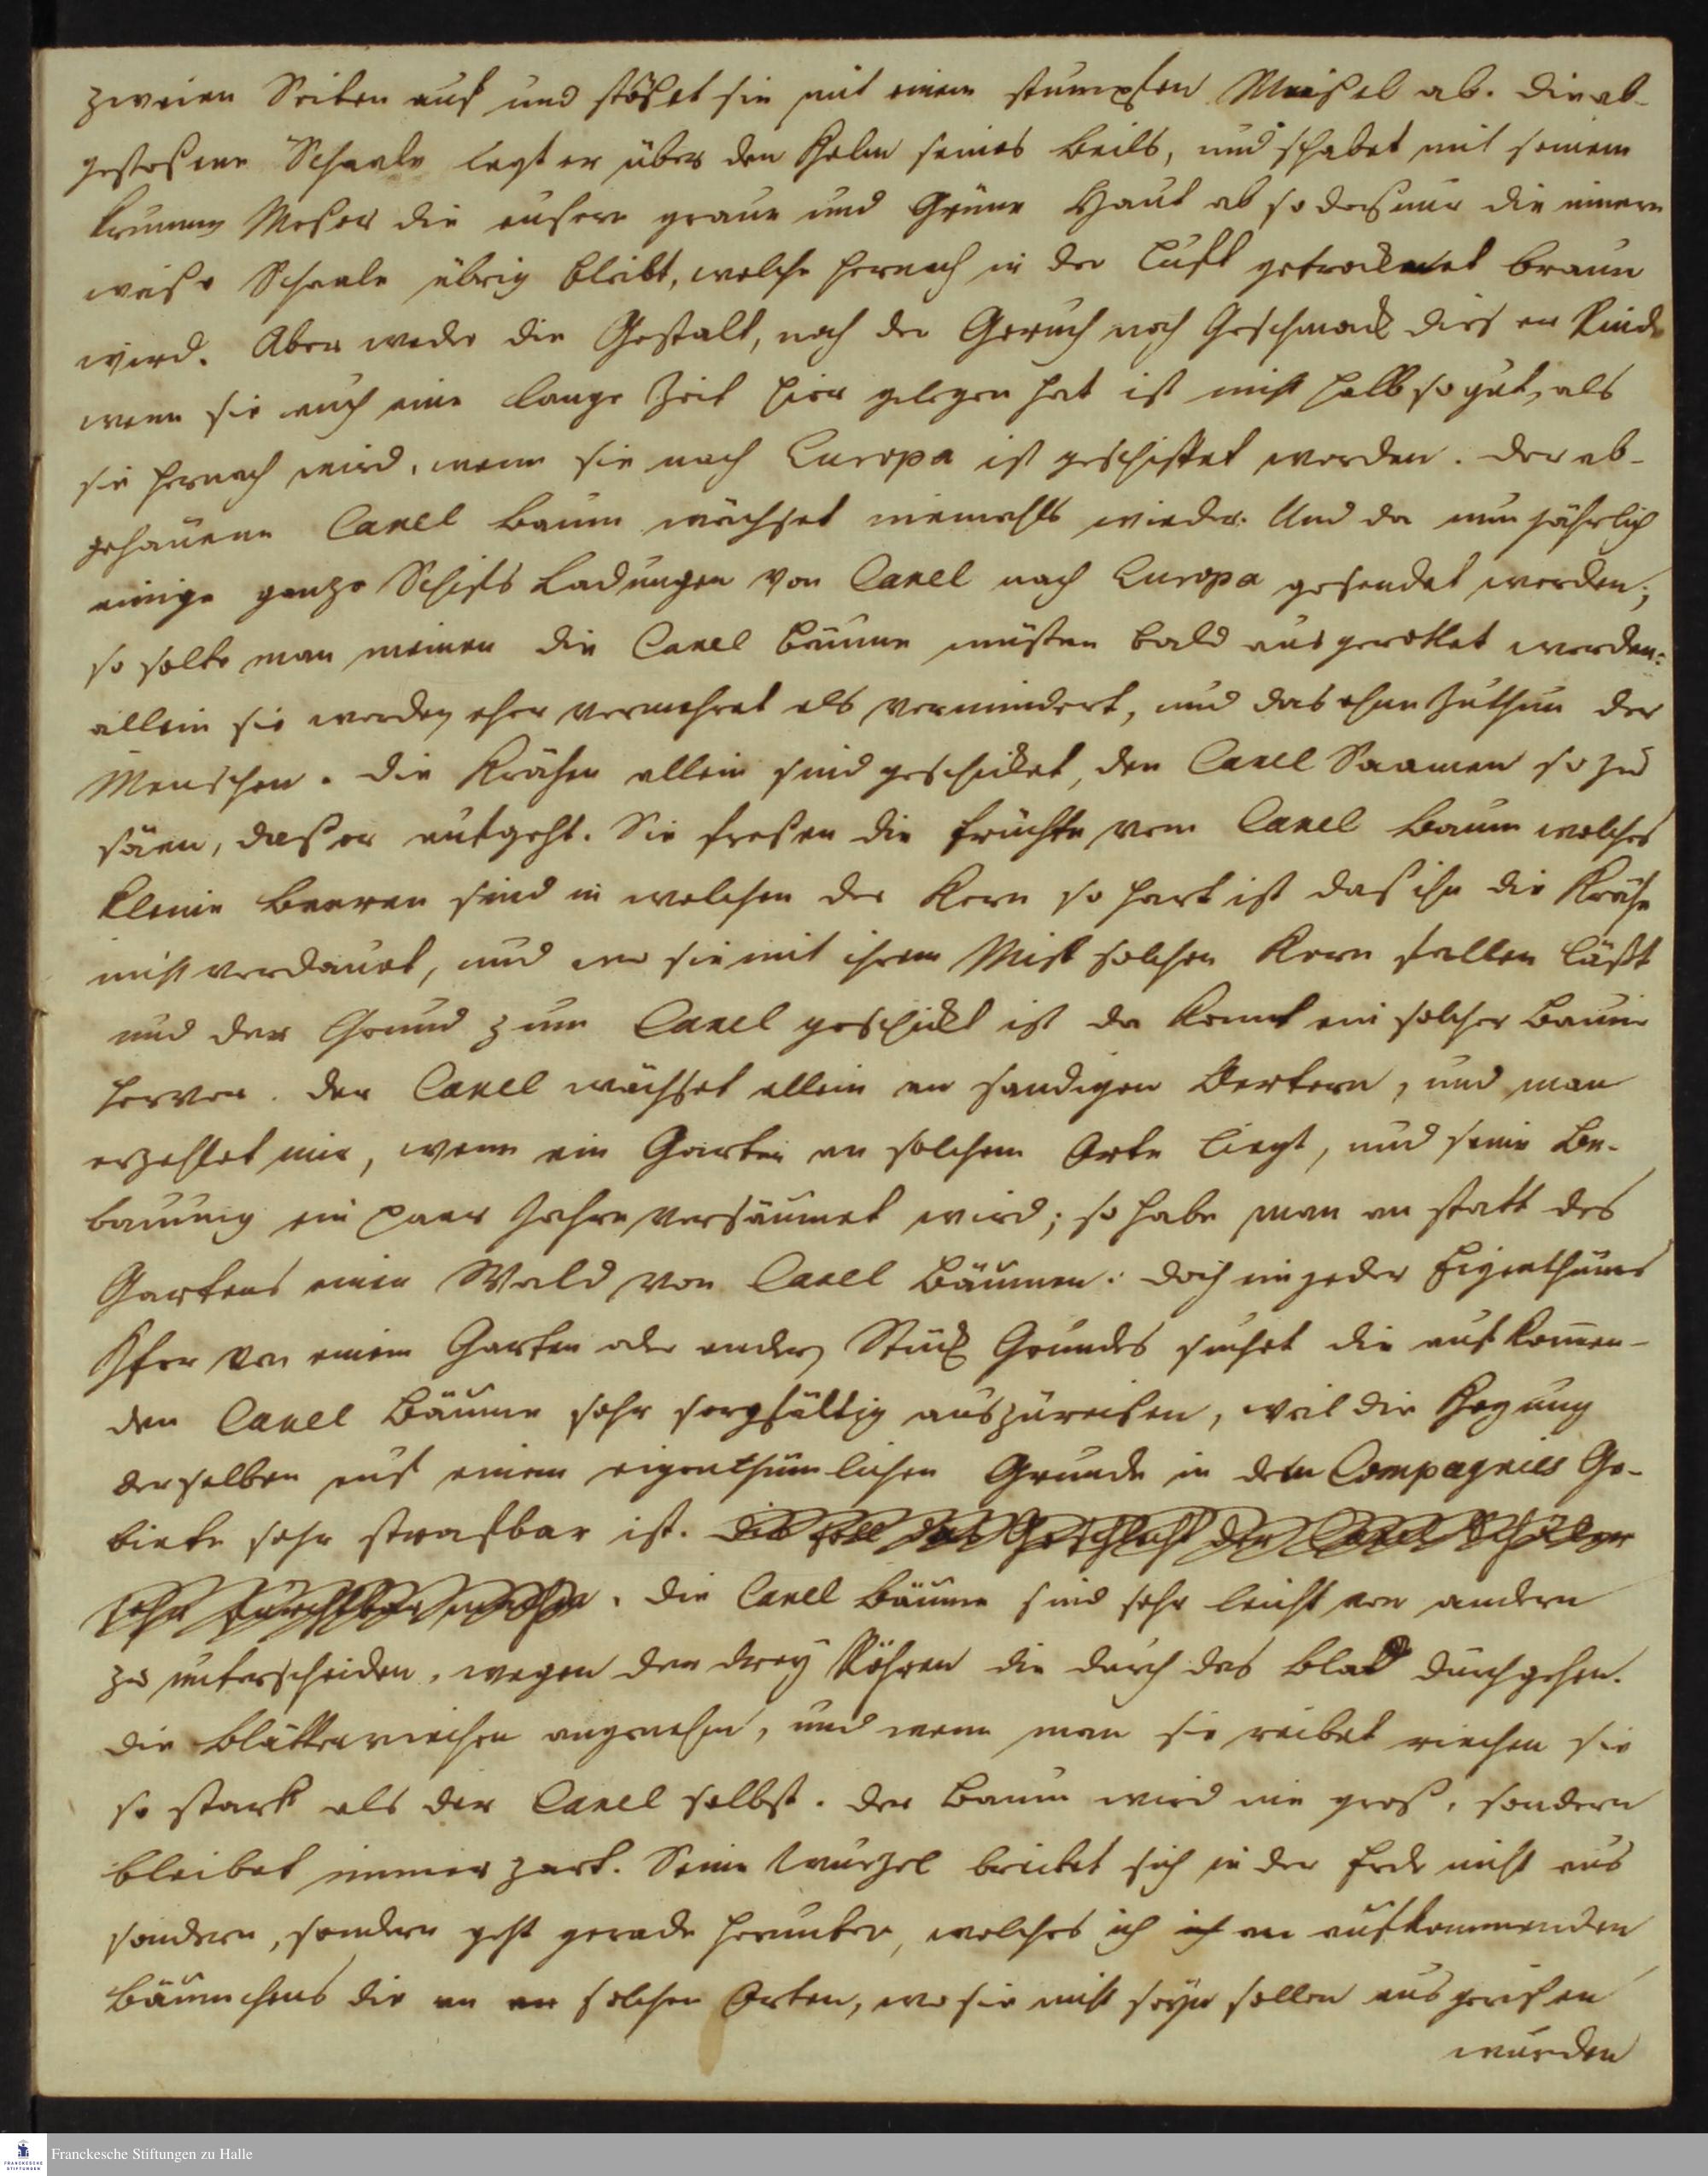 zweien Seiten auf und stößet sie mit einem stumpfen Meißel ab. Die ab-
gestoßene Schaale legt er über den Helm seines Beils, und schabet mit seinem
krummen Meßer die eusere graue und Grüne Haut ab so daß nur die innere
weise Schaale übrig bleibt, welche hernach in der Luft getrocknet braun
wird. Aber weder die Gestalt, noch der Geruch noch Geschmack dieser Rinde
wenn sie auch eine lange Zeit hier gelegen hat ist nicht halb so gut, als
sie hernach wird, wenn sie nach Europa ist geschiffet worden. Der ab-
gehauene Canel Baum wächset niemahls wieder. Und da nun jährlich
einige ganze Schifs Ladungen von Canel nach Europa gesendet werden;
so solte man meinen die Canel Bäume müsten bald ausgerottet werden:
allein sie werden eher vermehret als vermindert, und das ohne Zuthun der
Menschen. Die Krähen allein sind geschicket, den Canel Saamen so zu
säen, daß er aufgeht. Sie freßen die Früchte vom Canel Baum welches
kleine Beeren sind in welchen der Kern so hart ist daß ihn die Krähe
nicht verdauet, und wo sie mit ihrem Mist solchen Kern fallen läßt
und der Grund zum Canel geschickt ist da komt ein solcher Baum
hervor. Der Canel wächset allein an sandigen Oertern, und man
erzehlet mir, wenn ein Garten an solchem Orte liegt, und seine Be-
bauung ein paar Jahre versäumet wird; so habe man an statt des
Gartens einen Wald von Canel Bäumen: doch ein jeder Eigenthüms
Herr von einem Garten oder ander Stück Grundes suchet die aufkommen-
den Canel Bäume sehr sorgfältig auszureisen, weil die Hegung
derselben auf einem eigenthümlichen Grunde in dem Compagnies Ge-
biete sehr strafbar ist. Dis soll das Geschlecht der Canel Schäler
sehr furchtbar machen. Die Canel Bäume sind sehr leicht von andern
zu unterscheiden, wegen der drey Röhren die durch das Blat durchgehen.
Die Blätter riechen angenehm, und wenn man sie reibet riechen sie
so stark als der Canel selbst. Der Baum wird nie gros, sondern
bleibet immer zart. Seine Wurzel breitet sich in der Erde nicht aus
sondern, sondern geht gerade herunter, welches ich ich an aufkommenden
Bäumchens die an an solchen Orten, wo sie nicht seyn sollen ausgerisen
wurden
Franckesche Stiftungen zu Halle